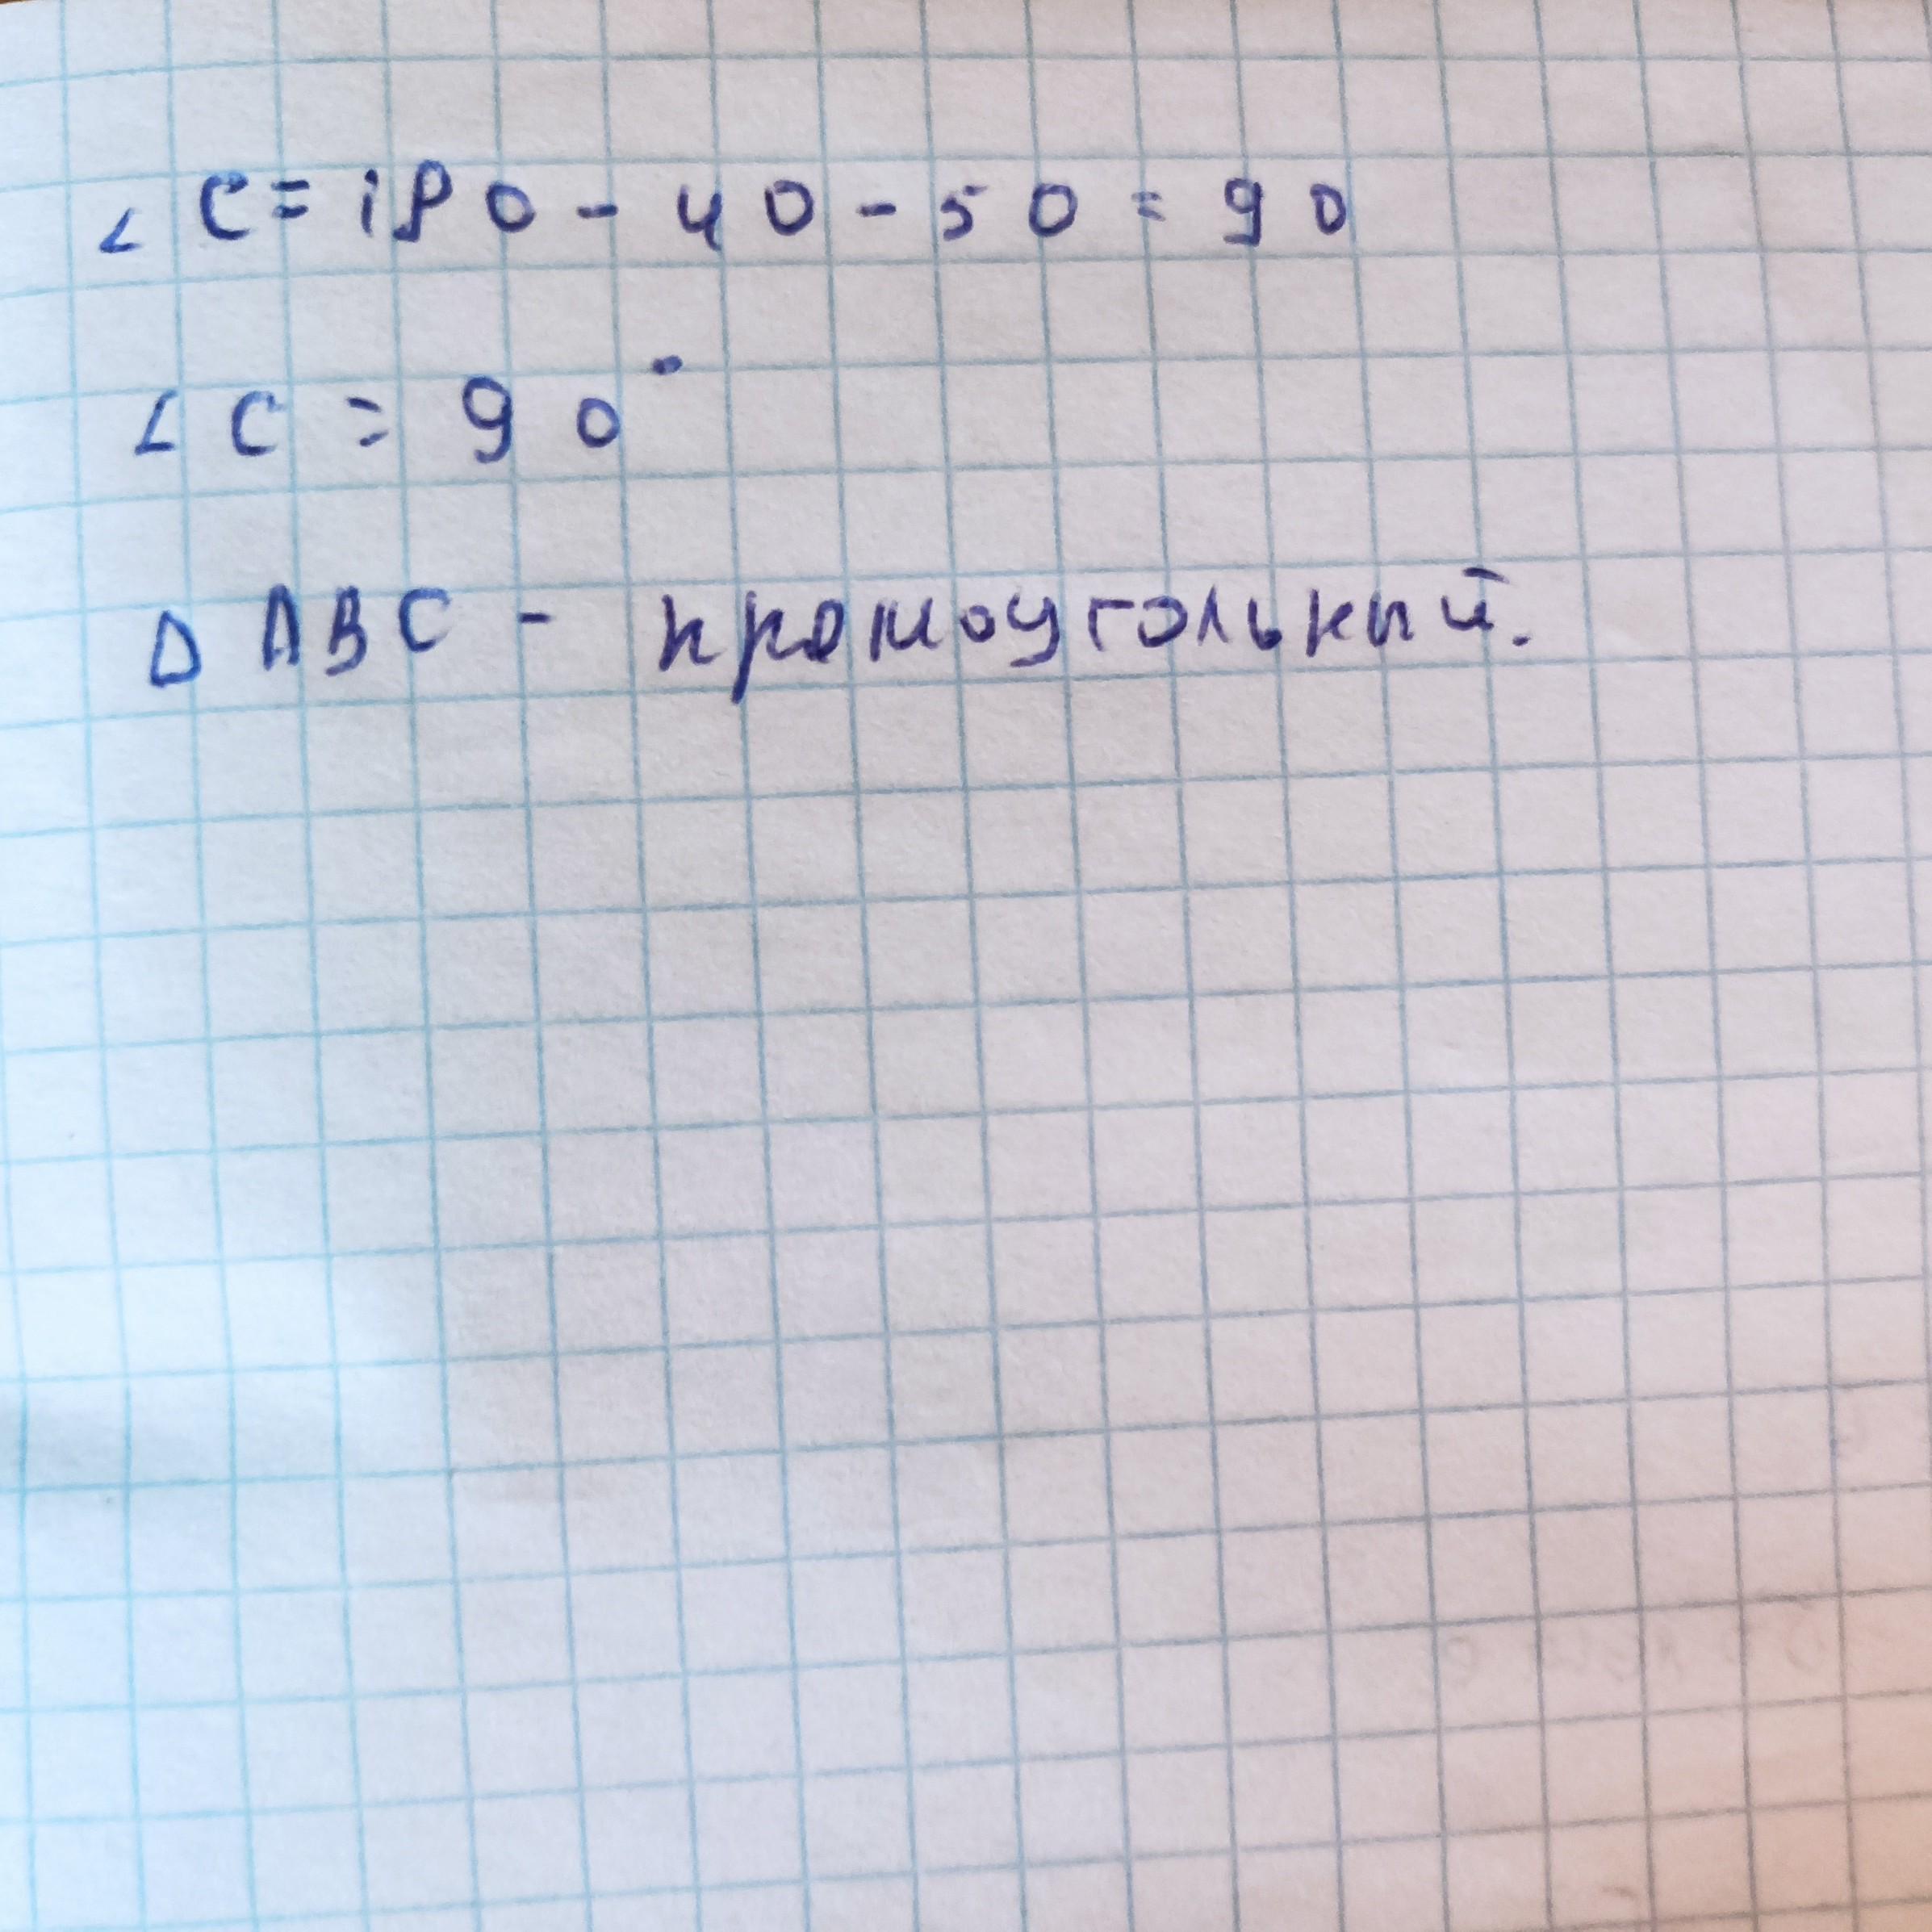 ∠ C = 180 - 40 - 50 = 90
∠ C = 90°
Δ ABC - прямоугольный.